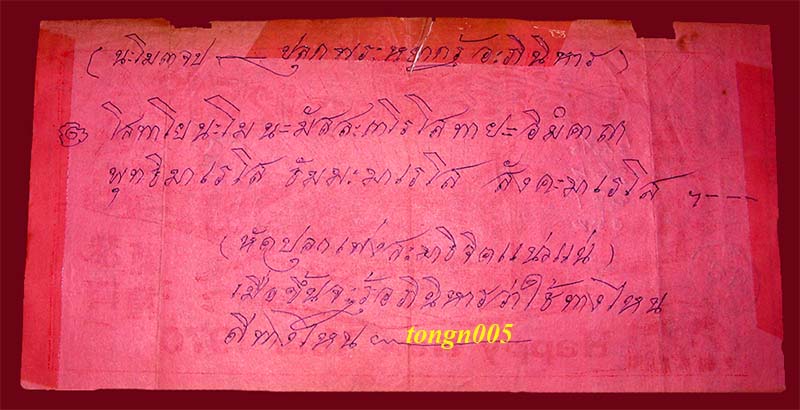 (นะโม๓จบ — ปลุกพระหยกรู้อะภินิหาร)
โสทาโย นะโม นะมัสสะ โสทายะ อิมังคาถา
พุทธิมาเรโส ธัมมะมาเรโส สังคะมาเรโส ๆ----
(หัดปลุกเพ่งสะมาธิจิตแน่วแน่)
เมื่อขึ้นจะรู้อภินิหารว่าใช้ทางไหน
ดีทางไหน
tongn005